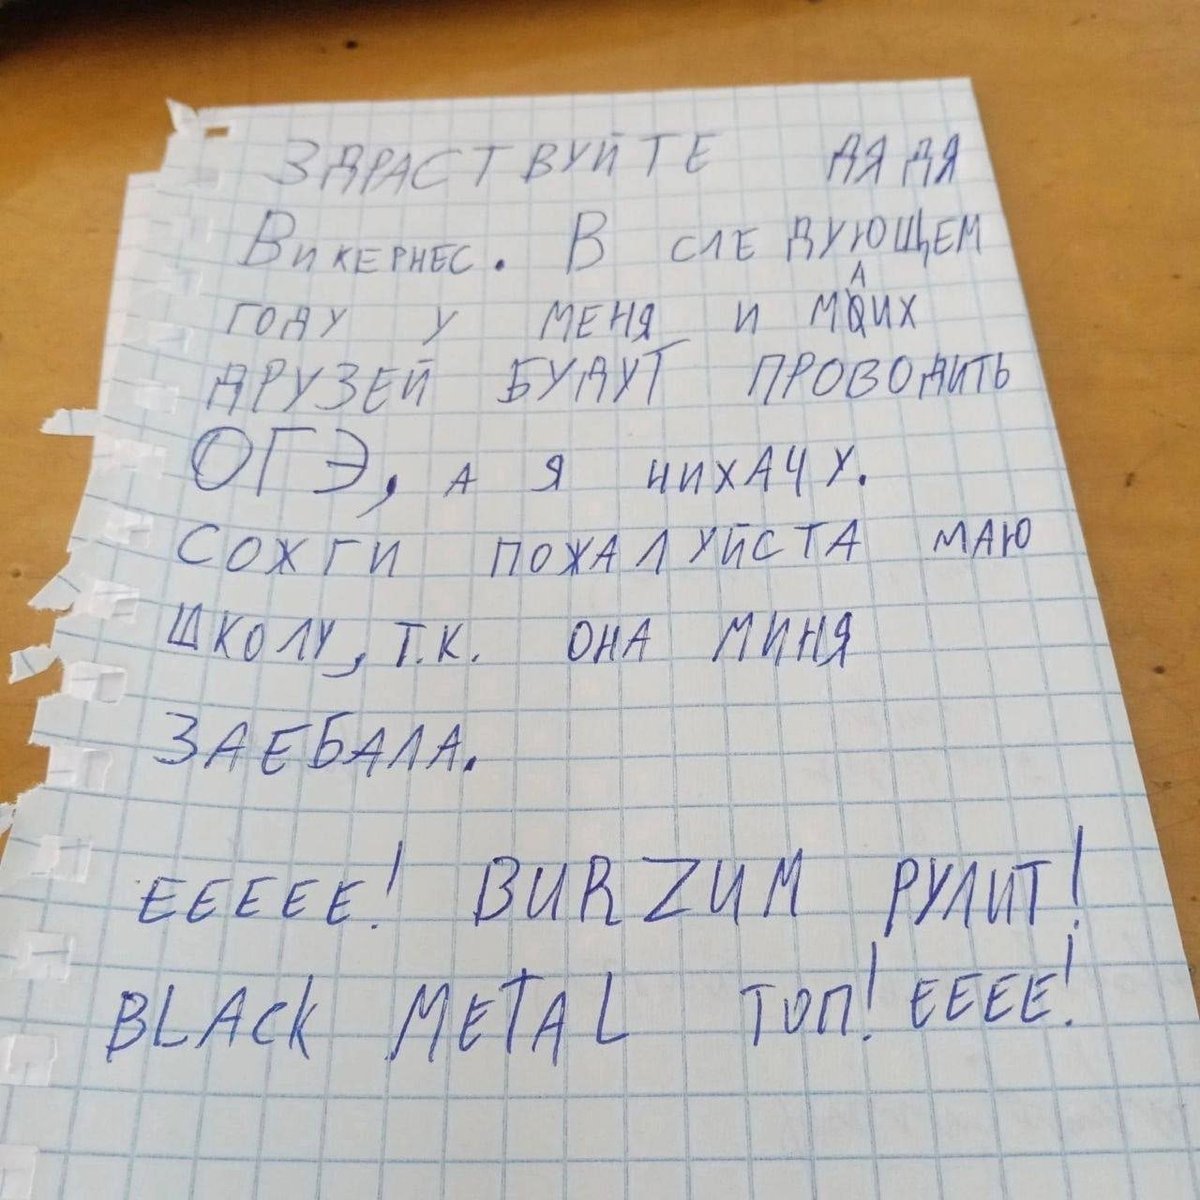 ЗДРАСТВУЙТЕ ДЯДЯ
ВИКЕРНЕС. В СЛЕДУЮЩЕМ
ГОДУ У МЕНЯ И МАИХ
ДРУЗЕЙ БУДУТ ПРОВОДИТЬ
ОГЭ, А Я НИХАЧУ.
СОЖГИ ПОЖАЛУЙСТА МАЮ
ШКОЛУ, Т.К. ОНА МИНЯ
ЗАЕБАЛА.
ЕЕЕЕЕ! BURZUM РУЛИТ!
BLACK METAL ТОП! ЕЕЕЕ!